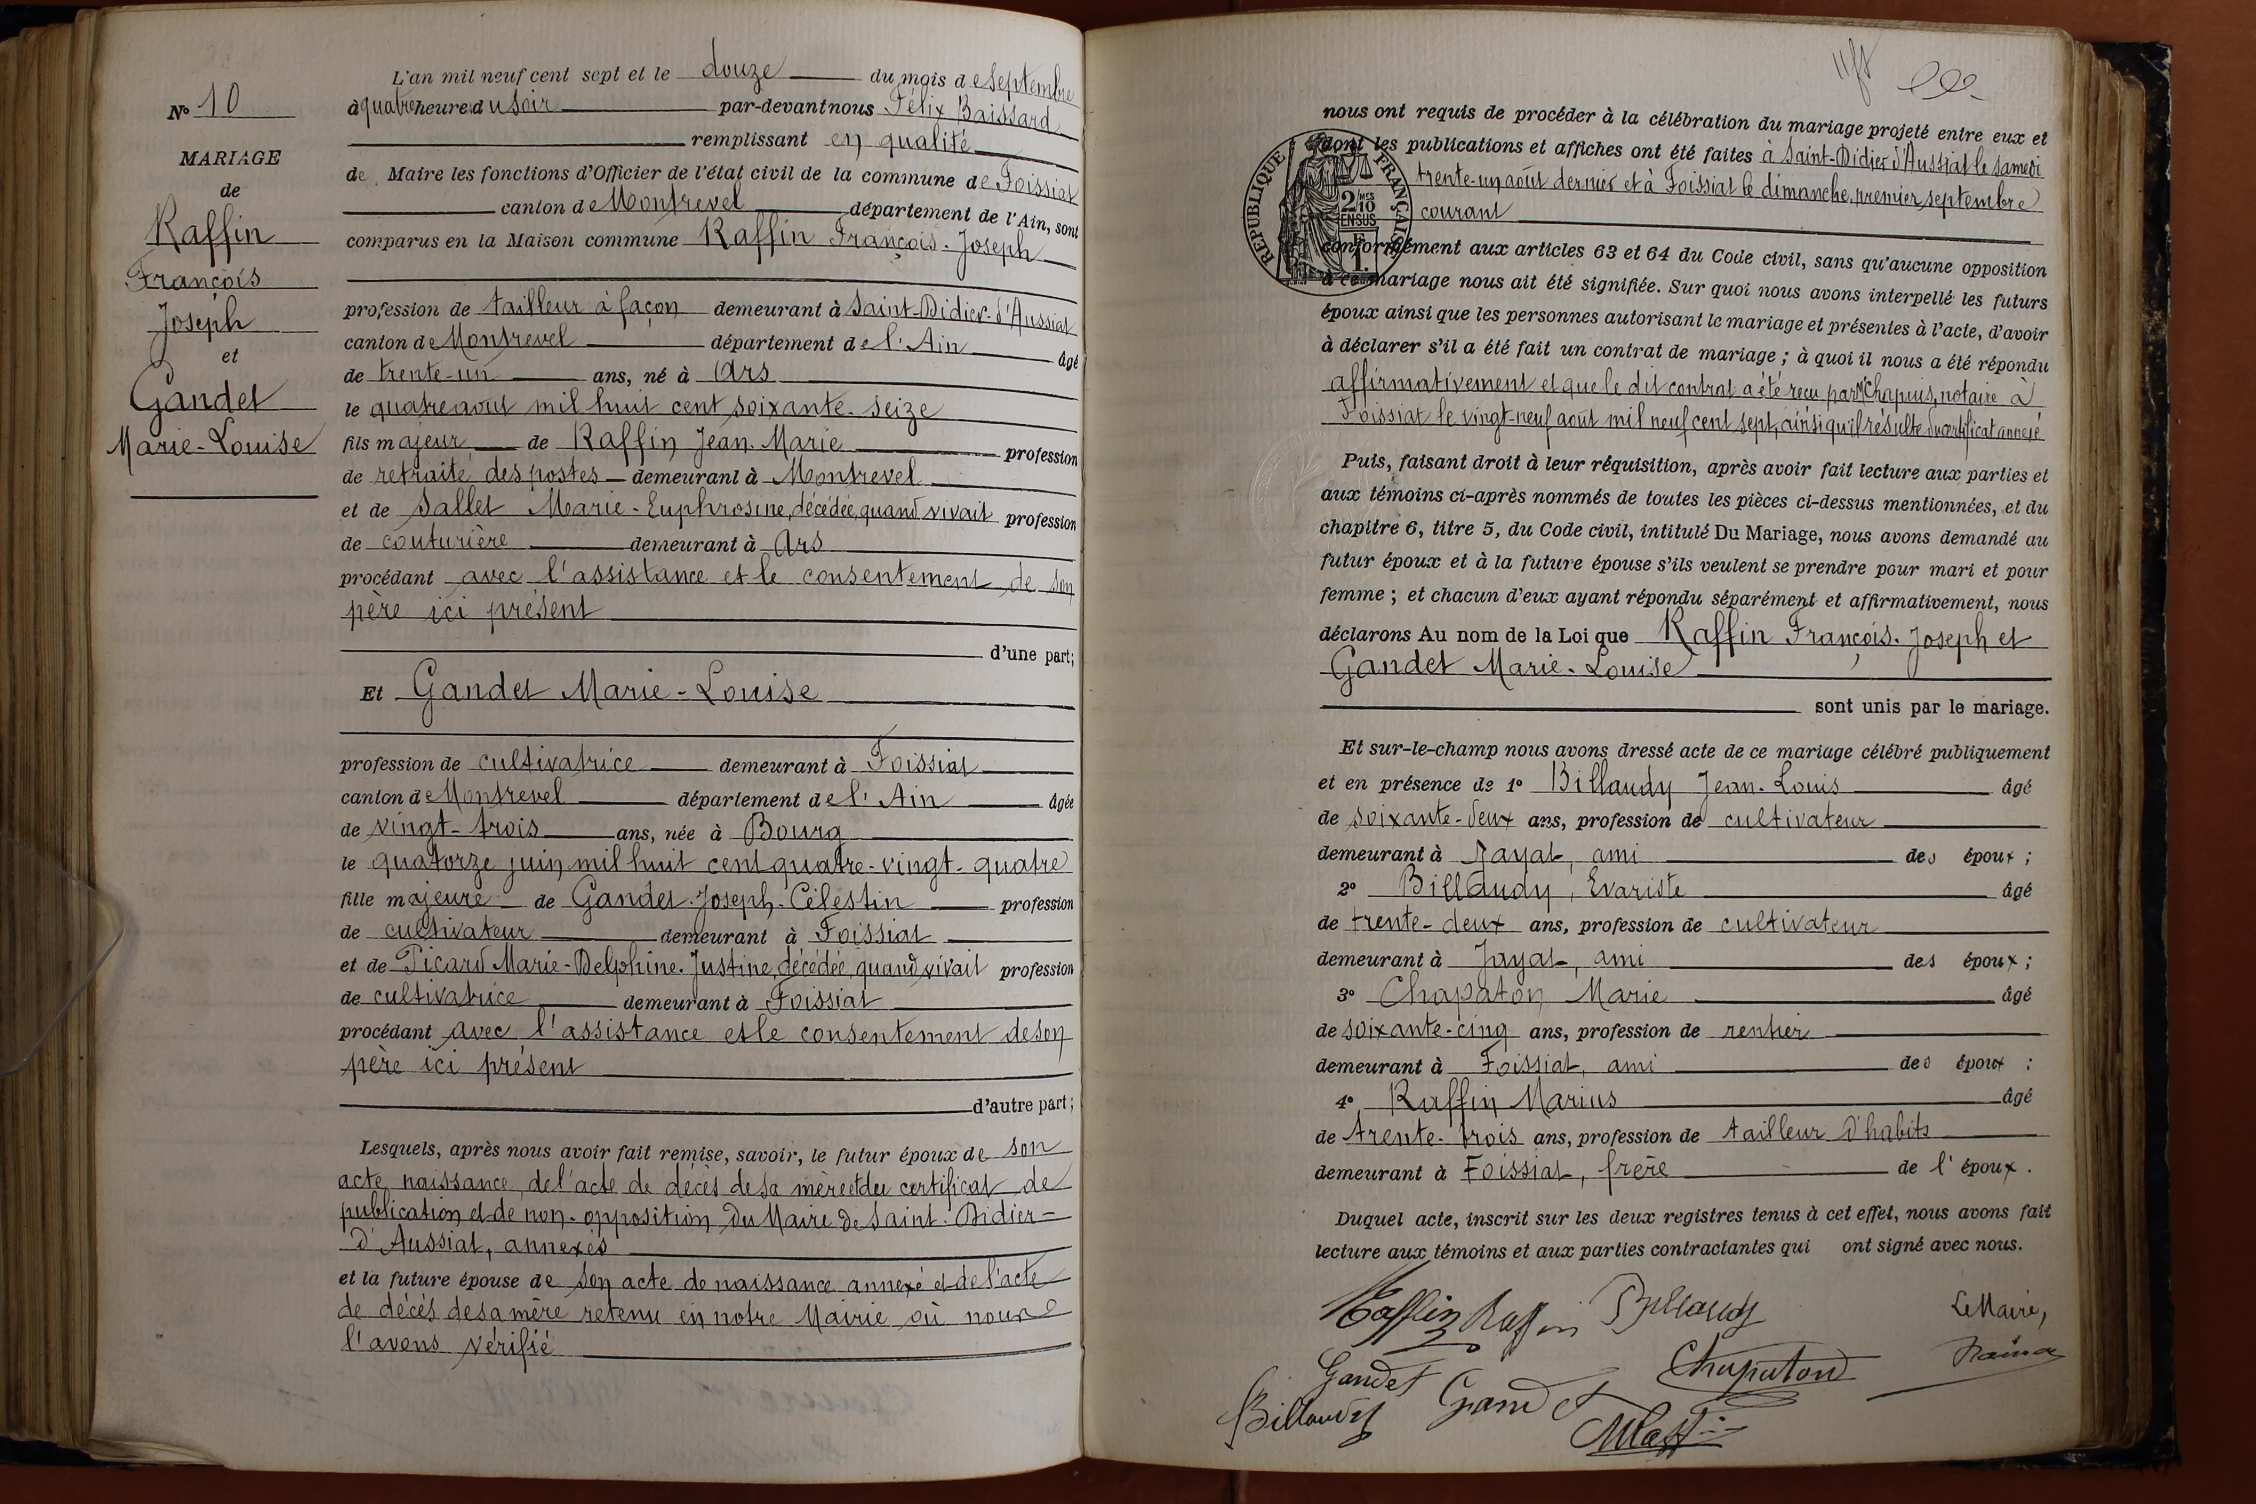 Nº 10
MARIAGE
de
Raffin
François
Joseph
et
Gandet
Marie-Louise
L'an mil neuf cent sept et le douze du mois de Septembre
à quatre heure du soir par-devant nous Félix Baissard
remplissant en qualité
de Maire les fonctions d'Officier de l'état civil de la commune de Foissiat
canton de Montrevel département de l'Ain, sont
comparus en la Maison commune Raffin François-Joseph
profession de tailleur à façon demeurant à Saint-Didier-d'Aussiat
canton de Montrevel département de l'Ain âgé
de trente-un ans, né à Ars
le quatre aout mil huit cent soixante-seize
fils majeur de Raffin Jean-Marie profession
de retraité des postes demeurant à Montrevel
et de Sallet Marie-Euphrosine, décédée, quand vivait profession
de couturière demeurant à Ars
procédant avec l'assistance et le consentement de son
père ici présent
d'une part;
Et Gandet Marie-Louise
profession de cultivatrice demeurant à Foissiat
canton de Montrevel département de l'Ain âgée
de vingt-trois ans, née à Bourg
le quatorze juin mil huit cent quatre-vingt-quatre
fille majeure de Gandet Joseph-Célestin profession
de cultivateur demeurant à Foissiat
et de Picard Marie-Delphine-Justine, décédée, quand vivait profession
de cultivatrice demeurant à Foissiat
procédant avec l'assistance et le consentement de son
père ici présent
d'autre part;
Lesquels, après nous avoir fait remise, savoir, le futur époux de son
acte naissance, de l'acte de décès de sa mère et du certificat de
publication et de non-opposition du Maire de Saint-Didier-
d'Aussiat, annexés
et la future épouse de son acte de naissance annexé et de l'acte
de décès de sa mère retenu en notre Mairie où nous
l'avons vérifié
nous ont requis de procéder à la célébration du mariage projeté entre eux et
dont les publications et affiches ont été faites à Saint-Didier d'Aussiat le samedi
trente-un août dernier et à Foissiat le dimanche, premier septembre
courant
RÉPUBLIQUE FRANÇAISE
2/10
EN SUS
1 F.
conformément aux articles 63 et 64 du Code civil, sans qu'aucune opposition
à ce mariage nous ait été signifiée. Sur quoi nous avons interpellé les futurs
époux ainsi que les personnes autorisant le mariage et présentes à l'acte, d'avoir
à déclarer s'il a été fait un contrat de mariage ; à quoi il nous a été répondu
affirmativement et que le dit contrat a été reçu par Mº Chapuis, notaire à
Foissiat le vingt-neuf aout mil neuf cent sept, ainsi qu'il résulte du certificat annexé
Puis, faisant droit à leur réquisition, après avoir fait lecture aux parties et
aux témoins ci-après nommés de toutes les pièces ci-dessus mentionnées, et du
chapitre 6, titre 5, du Code civil, intitulé Du Mariage, nous avons demandé au
futur époux et à la future épouse s'ils veulent se prendre pour mari et pour
femme ; et chacun d'eux ayant répondu séparément et affirmativement, nous
déclarons Au nom de la Loi que Raffin François-Joseph et
Gandet Marie-Louise
sont unis par le mariage.
Et sur-le-champ nous avons dressé acte de ce mariage célébré publiquement
et en présence de 1º Billaudy Jean-Louis âgé
de soixante-deux ans, profession de cultivateur
demeurant à Jayat, ami des époux ;
2º Billaudy, Evariste âgé
de trente-deux ans, profession de cultivateur
demeurant à Jayat, ami des époux ;
3º Chapaton Marie âgé
de soixante-cinq ans, profession de rentier
demeurant à Foissiat, ami des époux ;
4º Raffin Marius âgé
de trente-trois ans, profession de tailleur d'habits
demeurant à Foissiat, frère de l'époux.
Duquel acte, inscrit sur les deux registres tenus à cet effet, nous avons fait
lecture aux témoins et aux parties contractantes qui ont signé avec nous.
Raffin Raffin Billaudy Le Maire,
Gandet Chapaton
Billaudy Gandet